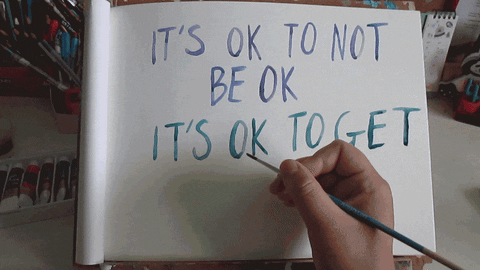 IT'S OK TO NOT
BE OK
IT'S OK TO GET